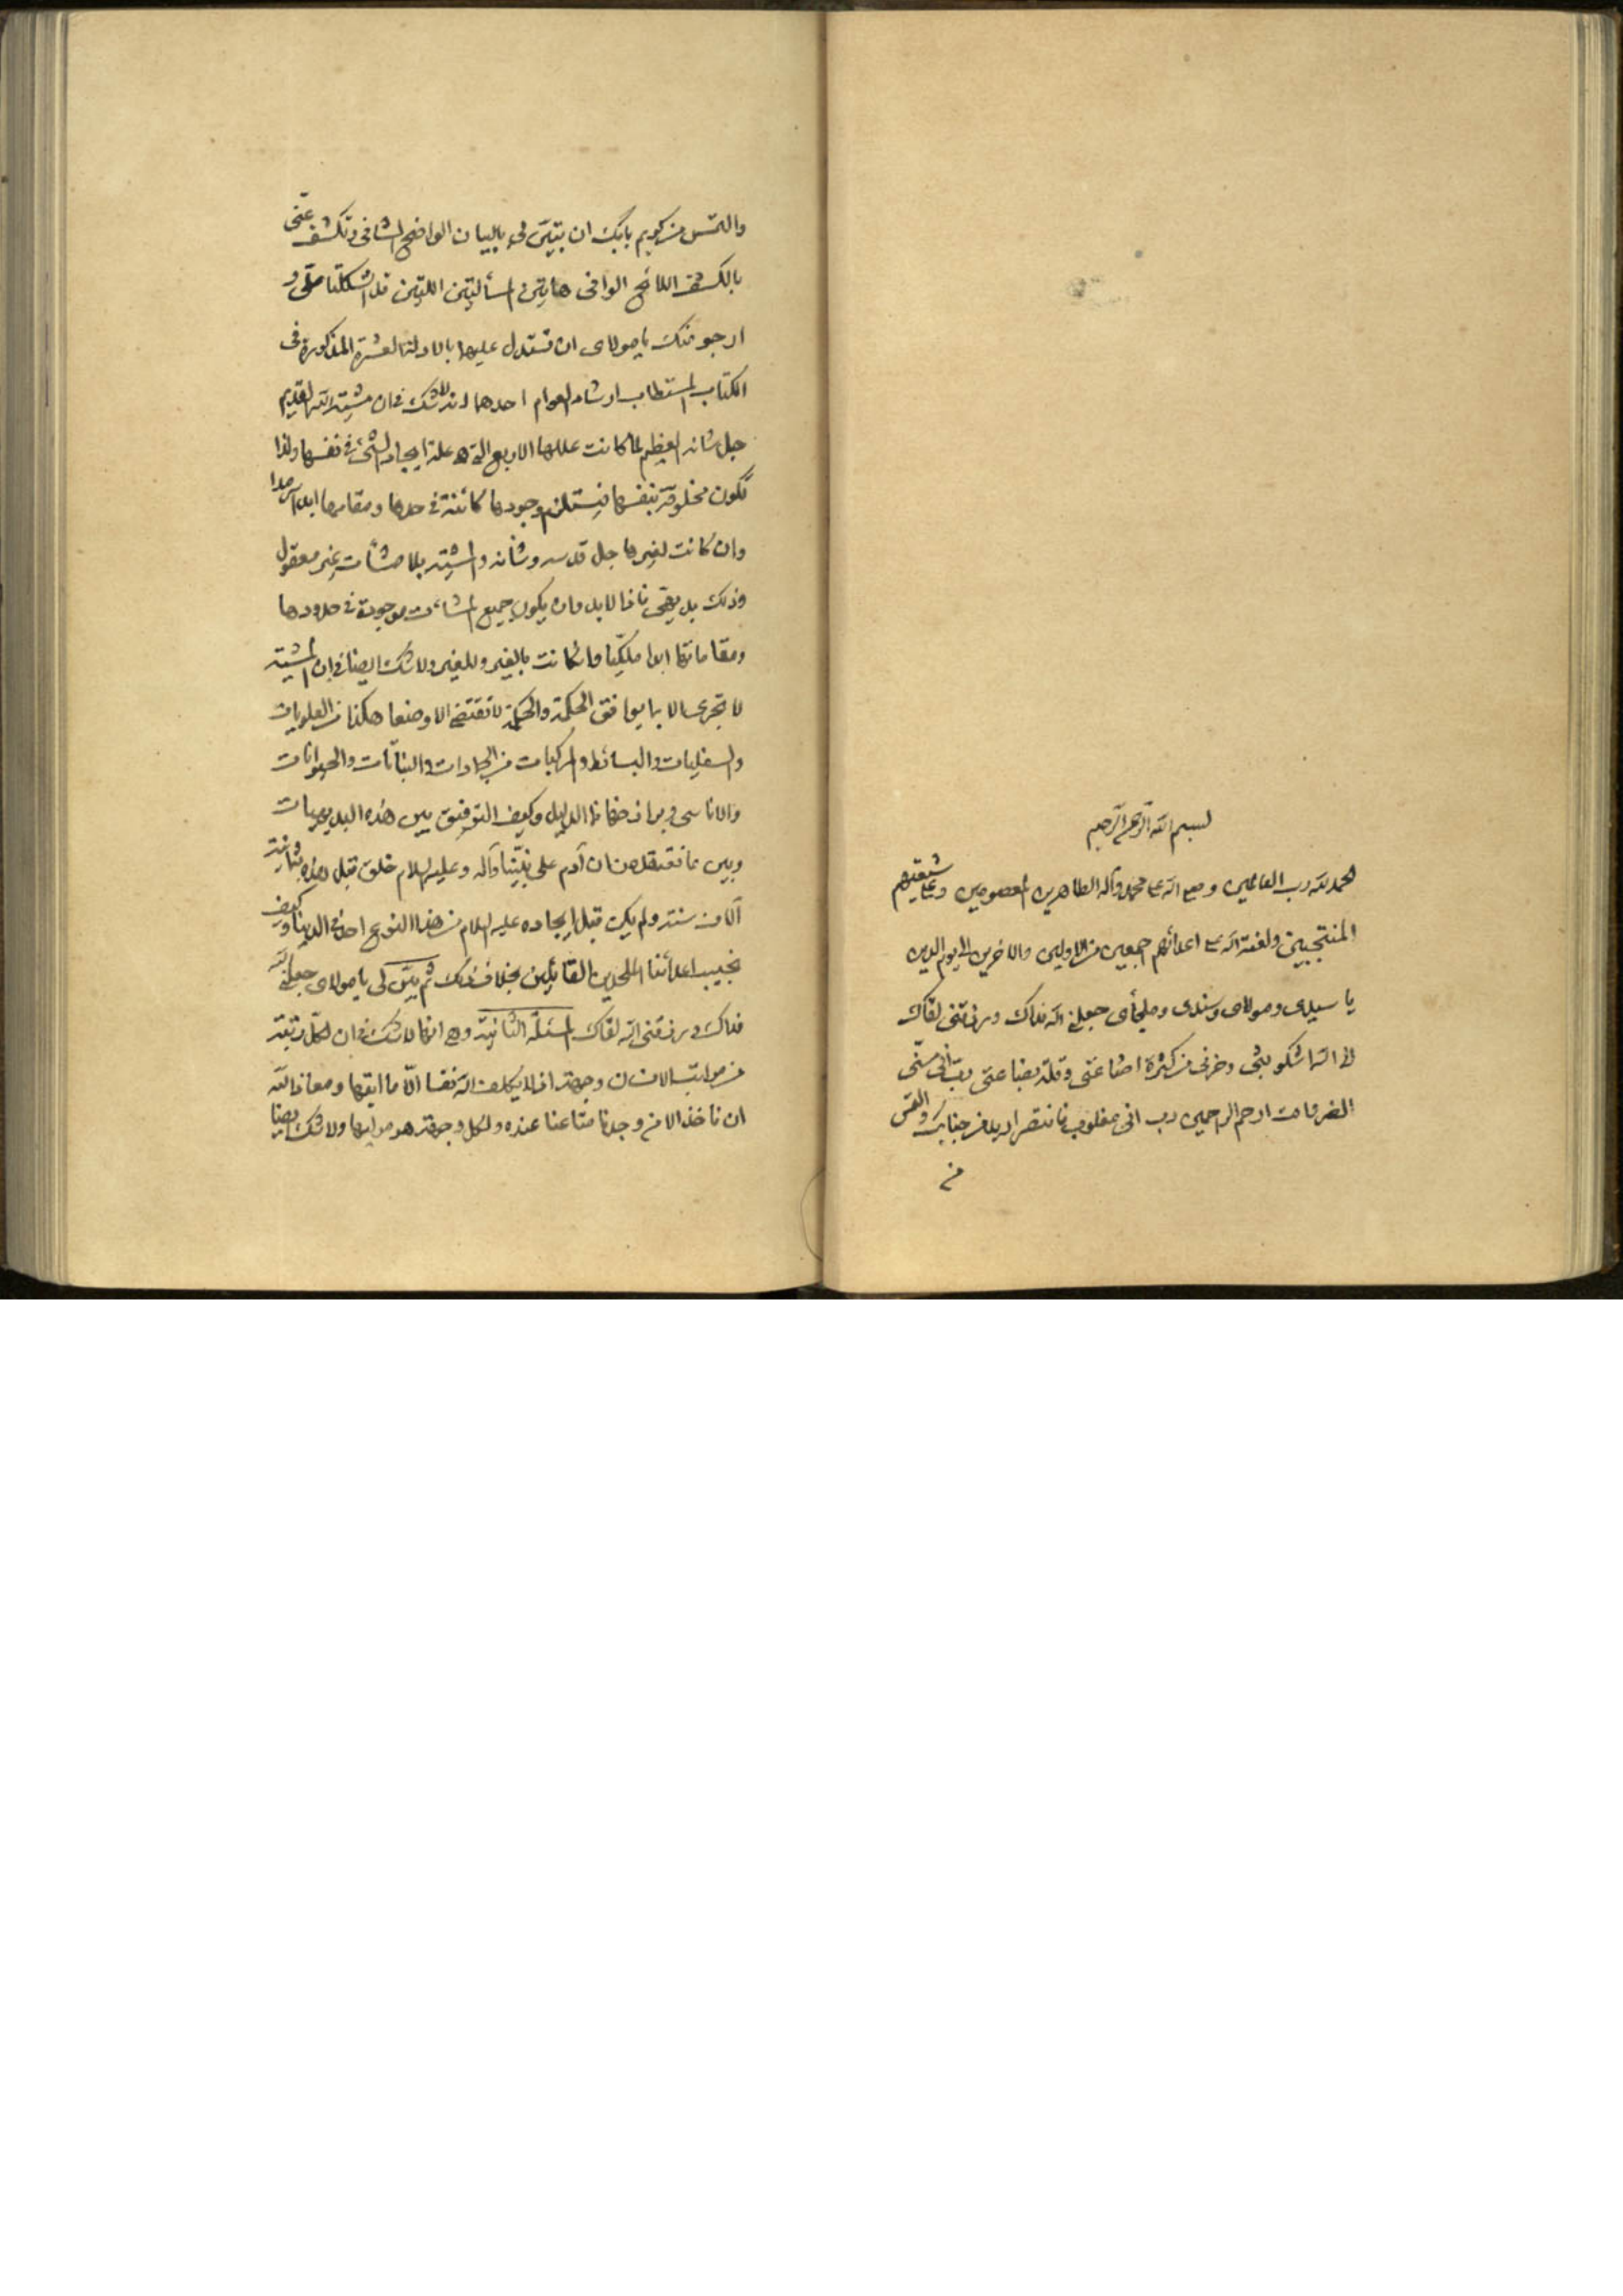 بسم الله الرحمن الرحيم
الحمد لله رب العالمين وصلى الله على محمد وآله الطاهرين المعصومين وعلى شيعتهم
المنتجبين ولعنة الله على اعدائهم اجمعين من الاولين والاخرين الى يوم الدين
يا سيدى ومولاى وسندى وملجأى جعلنى الله فداك ورزقنى لقاك
الى الله اشكو بثى وحزنى من كثرة اضاعتى وقلة بضاعتى رب انى مسنى
الضر وانت ارحم الراحمين رب انى مغلوب فانتصر اريد من جنابك والتمس
من
والتمس من كريم بابك ان تبين لى بالبيان الواضح الشافى وتكشف عنى
بالكشف اللائح الوافى هاتين المسألتين اللتين قد اشكلتا على و
ارجو منك يا مولاى ان تستدل عليهما بالادلة العشرة المذكورة فى
الكتاب المستطاب ارشاد العوام احدهما انه لا شك فى ان مشية الله القديم
جل شانه العظيم لما كانت عللها الاربع التى هى علة ايجاد الشئ فى نفسها ولذا
تكون مخلوقة بنفسها فيستلزم وجودها كائنة فى حدها ومقامها ابدا سرمدا
وان كانت لغيرها جل قدسه وشأنه والمشية بلا مشاآت غير معقول
وذلك بديهى فاذا لابد وان يكون جميع المشاءات موجودة فى حدودها
ومقاماتها ابدا ملكيا وان كانت بالغير وللغير ولا شك ايضا فى ان المشية
لا تجرى الا بما يوافق الحكمة والحكمة لا تقتضى الا وضعا هكذا من العلويات
والسفليات والبسائط والمركبات من الجمادات والنباتات والحيوانات
والاناسى وبراذخها الدليل وكيف التوفيق بين هذه البديهيات
وبين ما نعتقده من ان آدم على نبينا وآله وعليه السلام خلق قبل بثمانية
آلاف سنة ولم يكن قبل ايجاده عليه السلام من هذا النوع احد فى الدنيا وكيف
نجيب اعدائنا الملحدين القائلين بخلاف ذلك ثم بين لى يا مولاى جعلنى الله
فداك ورزقنى الله لقاك المسئلة الثانية وهى انها لا شك فى ان لكل رتبة
من مراتب الانسان وجهة اذ لا يكلف الله نفسا الا ما اتيها ومعاذ الله
ان ناخذ الا من وجدنا متاعنا عنده ولكل وجهة هو موليها ولا شك ايضا